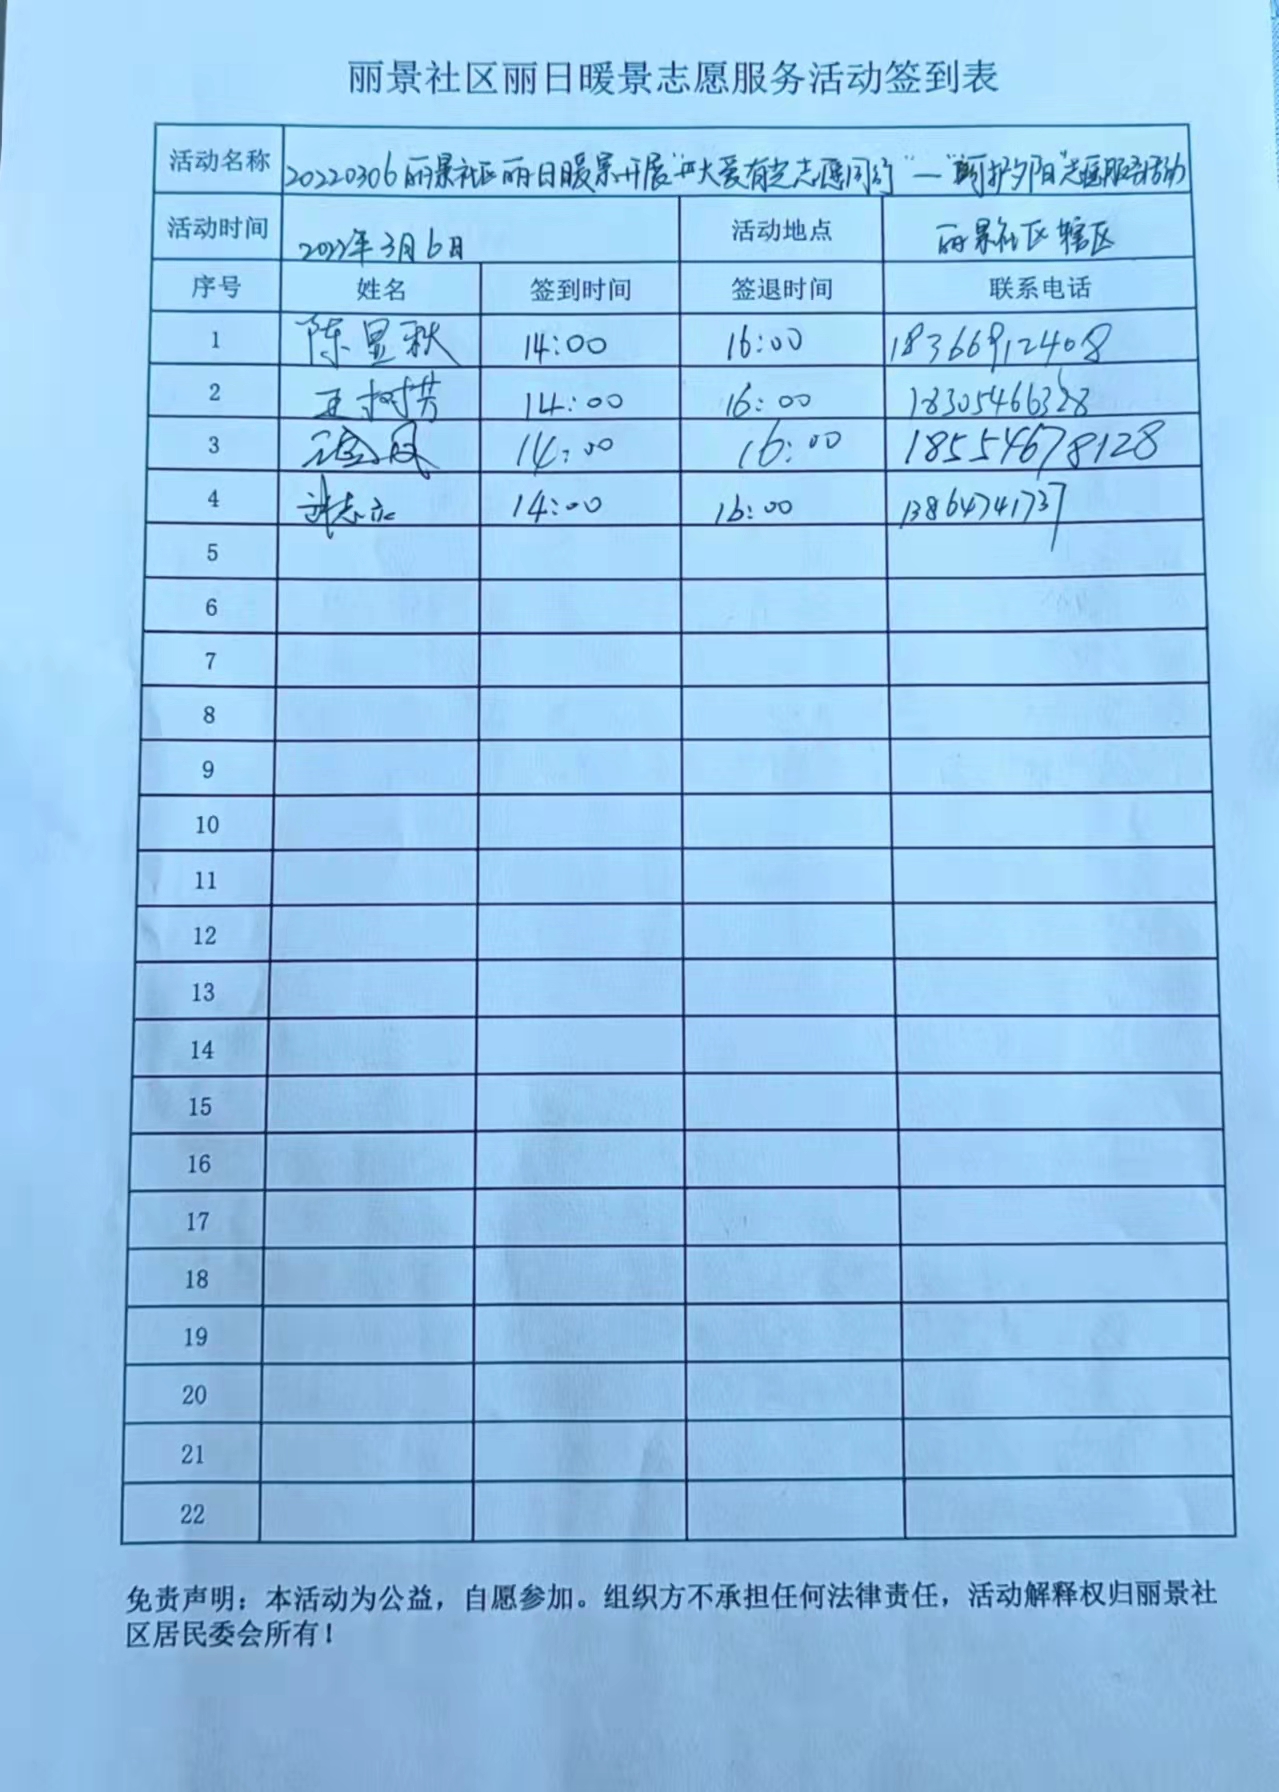 丽景社区丽日暖景志愿服务活动签到表
活动名称 20220306丽景社区丽日暖景开展“大爱有光志愿同行”—“呵护夕阳”志愿服务活动
活动时间 2022年3月6日 活动地点 丽景社区辖区
序号 姓名 签到时间 签退时间 联系电话
1 陈显秋 14:00 16:00 18366912408
2 王树芳 14:00 16:00 18305466328
3 14:00 16:00 18554678128
4 14:00 16:00 13864741737
5
6
7
8
9
10
11
12
13
14
15
16
17
18
19
20
21
22
免责声明：本活动为公益，自愿参加。组织方不承担任何法律责任，活动解释权归丽景社
区居民委会所有！